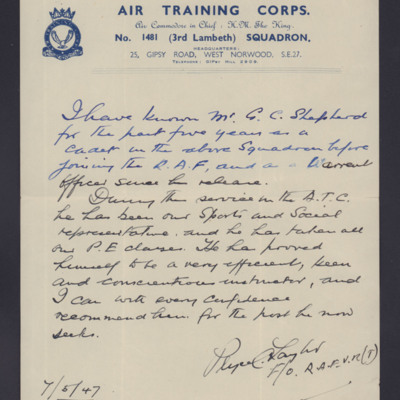 AIR TRAINING CORPS.
Air Commodore in Chief: H.M. The King.
No. 1481 (3rd Lambeth) SQUADRON,
HEADQUARTERS:
25, GIPSY ROAD, WEST NORWOOD, S.E.27.
TELEPHONE: GIPSY HILL
I have known Mr. G. C. Shepherd
for the past five years as a
cadet in the above Squadron before
joining the R.A.F, and as a Warrant
Officer since his release.
During the service in the A.T.C.
he has been our Sports and Social
representative. and he has taken all
our P.E classes. He has proved
himself to be a very efficient, keen
and conscientious instructor, and
I can with every confidence
recommend him for the post he now
seeks.
Taylor
F/O. R.A.F.V.R(T)
7/5/47